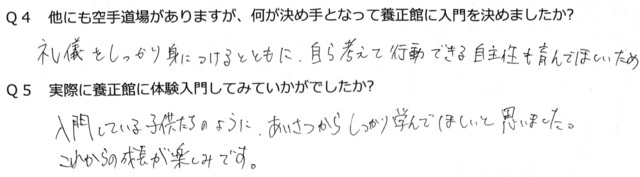 Q4 他にも空手道場がありますが、何が決め手となって養正館に入門を決めましたか?
礼儀をしっかり身につけるとともに、自ら考えて行動できる自主性も育んでほしいため
Q5 実際に養正館に体験入門してみていかがでしたか?
入門している子供たちのように、あいさつからしっかり学んでほしいと思いました。
これからの成長が楽しみです。